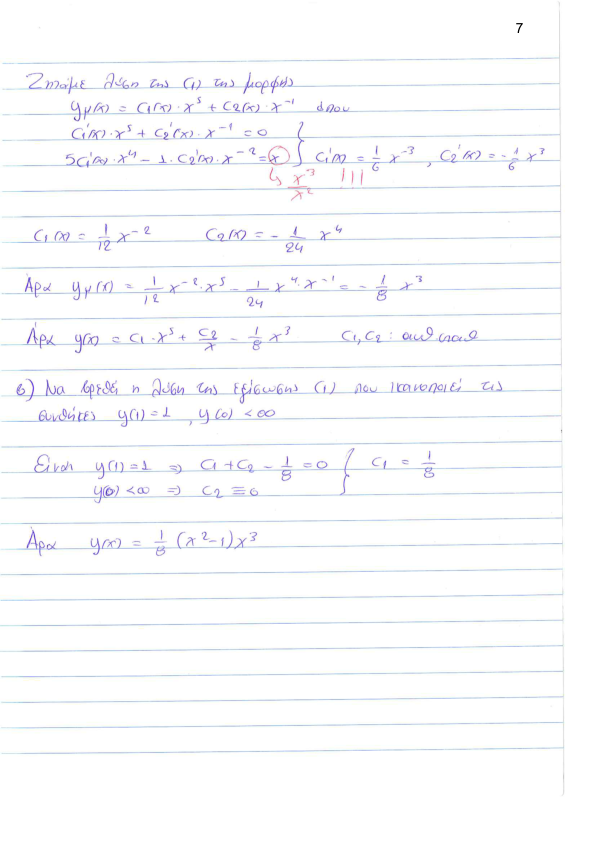 7
Ζητάμε λύση της (1) της μορφής
yμ(x) = C1(x)·x^5 + C2(x)·x^-1 όπου
C1'(x)·x^5 + C2'(x)·x^-1 = 0
5C1'(x)·x^4 - 1·C2'(x)·x^-2 = x } C1'(x) = 1/6 x^-3 , C2'(x) = -1/6 x^3
↳ x^3/x^2 !!!
C1(x) = 1/12 x^-2 C2(x) = - 1/24 x^4
Άρα yμ(x) = 1/12 x^-2·x^5 - 1/24 x^4·x^-1 = - 1/8 x^3
Άρα y(x) = C1·x^5 + C2/x - 1/8 x^3 C1, C2 : αυθ σταθ
β) Να βρεθεί η λύση της εξίσωσης (1) που ικανοποιεί τις
συνθήκες y(1) = 1 , y(0) < ∞
Είναι y(1) = 1 ⇒ C1 + C2 - 1/8 = 0 } C1 = 1/8
y(0) < ∞ ⇒ C2 ≡ 0
Άρα y(x) = 1/8 (x^2-1)x^3